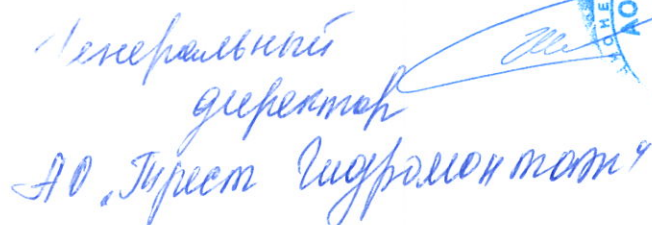 Генеральный
директор
АО „Трест Гидромонтаж"
АО